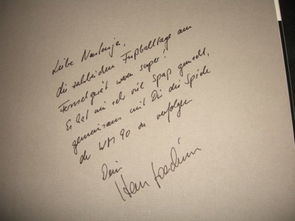 Liebe
die zahlreichen Fußballtage am
Fernsehgerät waren super!
Es hat mir sehr viel Spaß gemacht,
gemeinsam mit Dir die Spiele
der WM 90 zu verfolgen
Dein
Hans Joachim